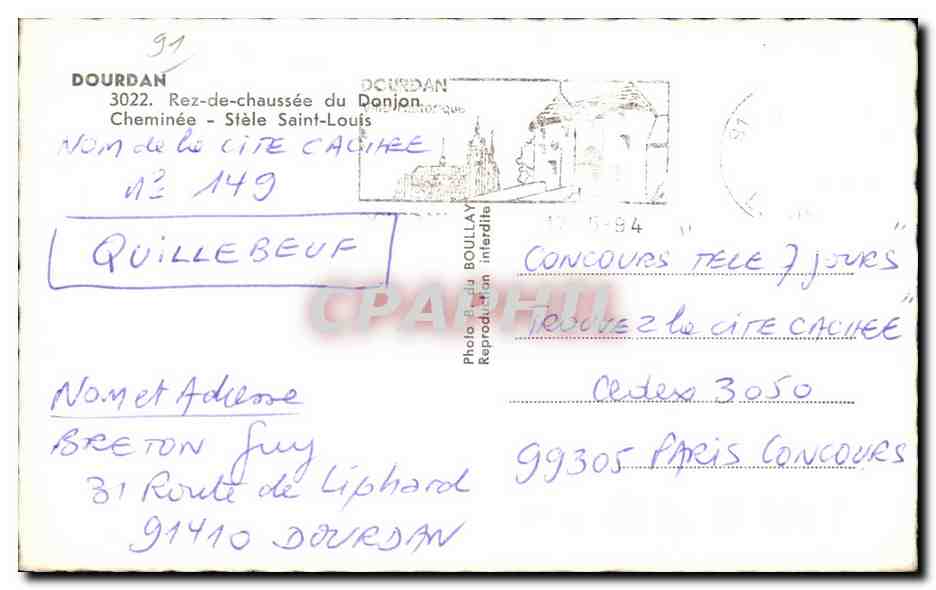 91
DOURDAN
3022. Rez-de-chaussée du Donjon
Cheminée - Stèle Saint-Louis
DOURDAN
Nom de la CITE CACHEE
n° 149
QUILLEBEUF
Nom et Adresse
BRETON Guy
31 Route de Liphard
91410 DOURDAN
Photo B. du BOULLAY
Reproduction interdite
5-94
" CONCOURS TELE 7 JOURS "
TROUVEZ la CITE CACHEE "
Cedex 3050
99305 PARIS CONCOURS
CPAPHIL